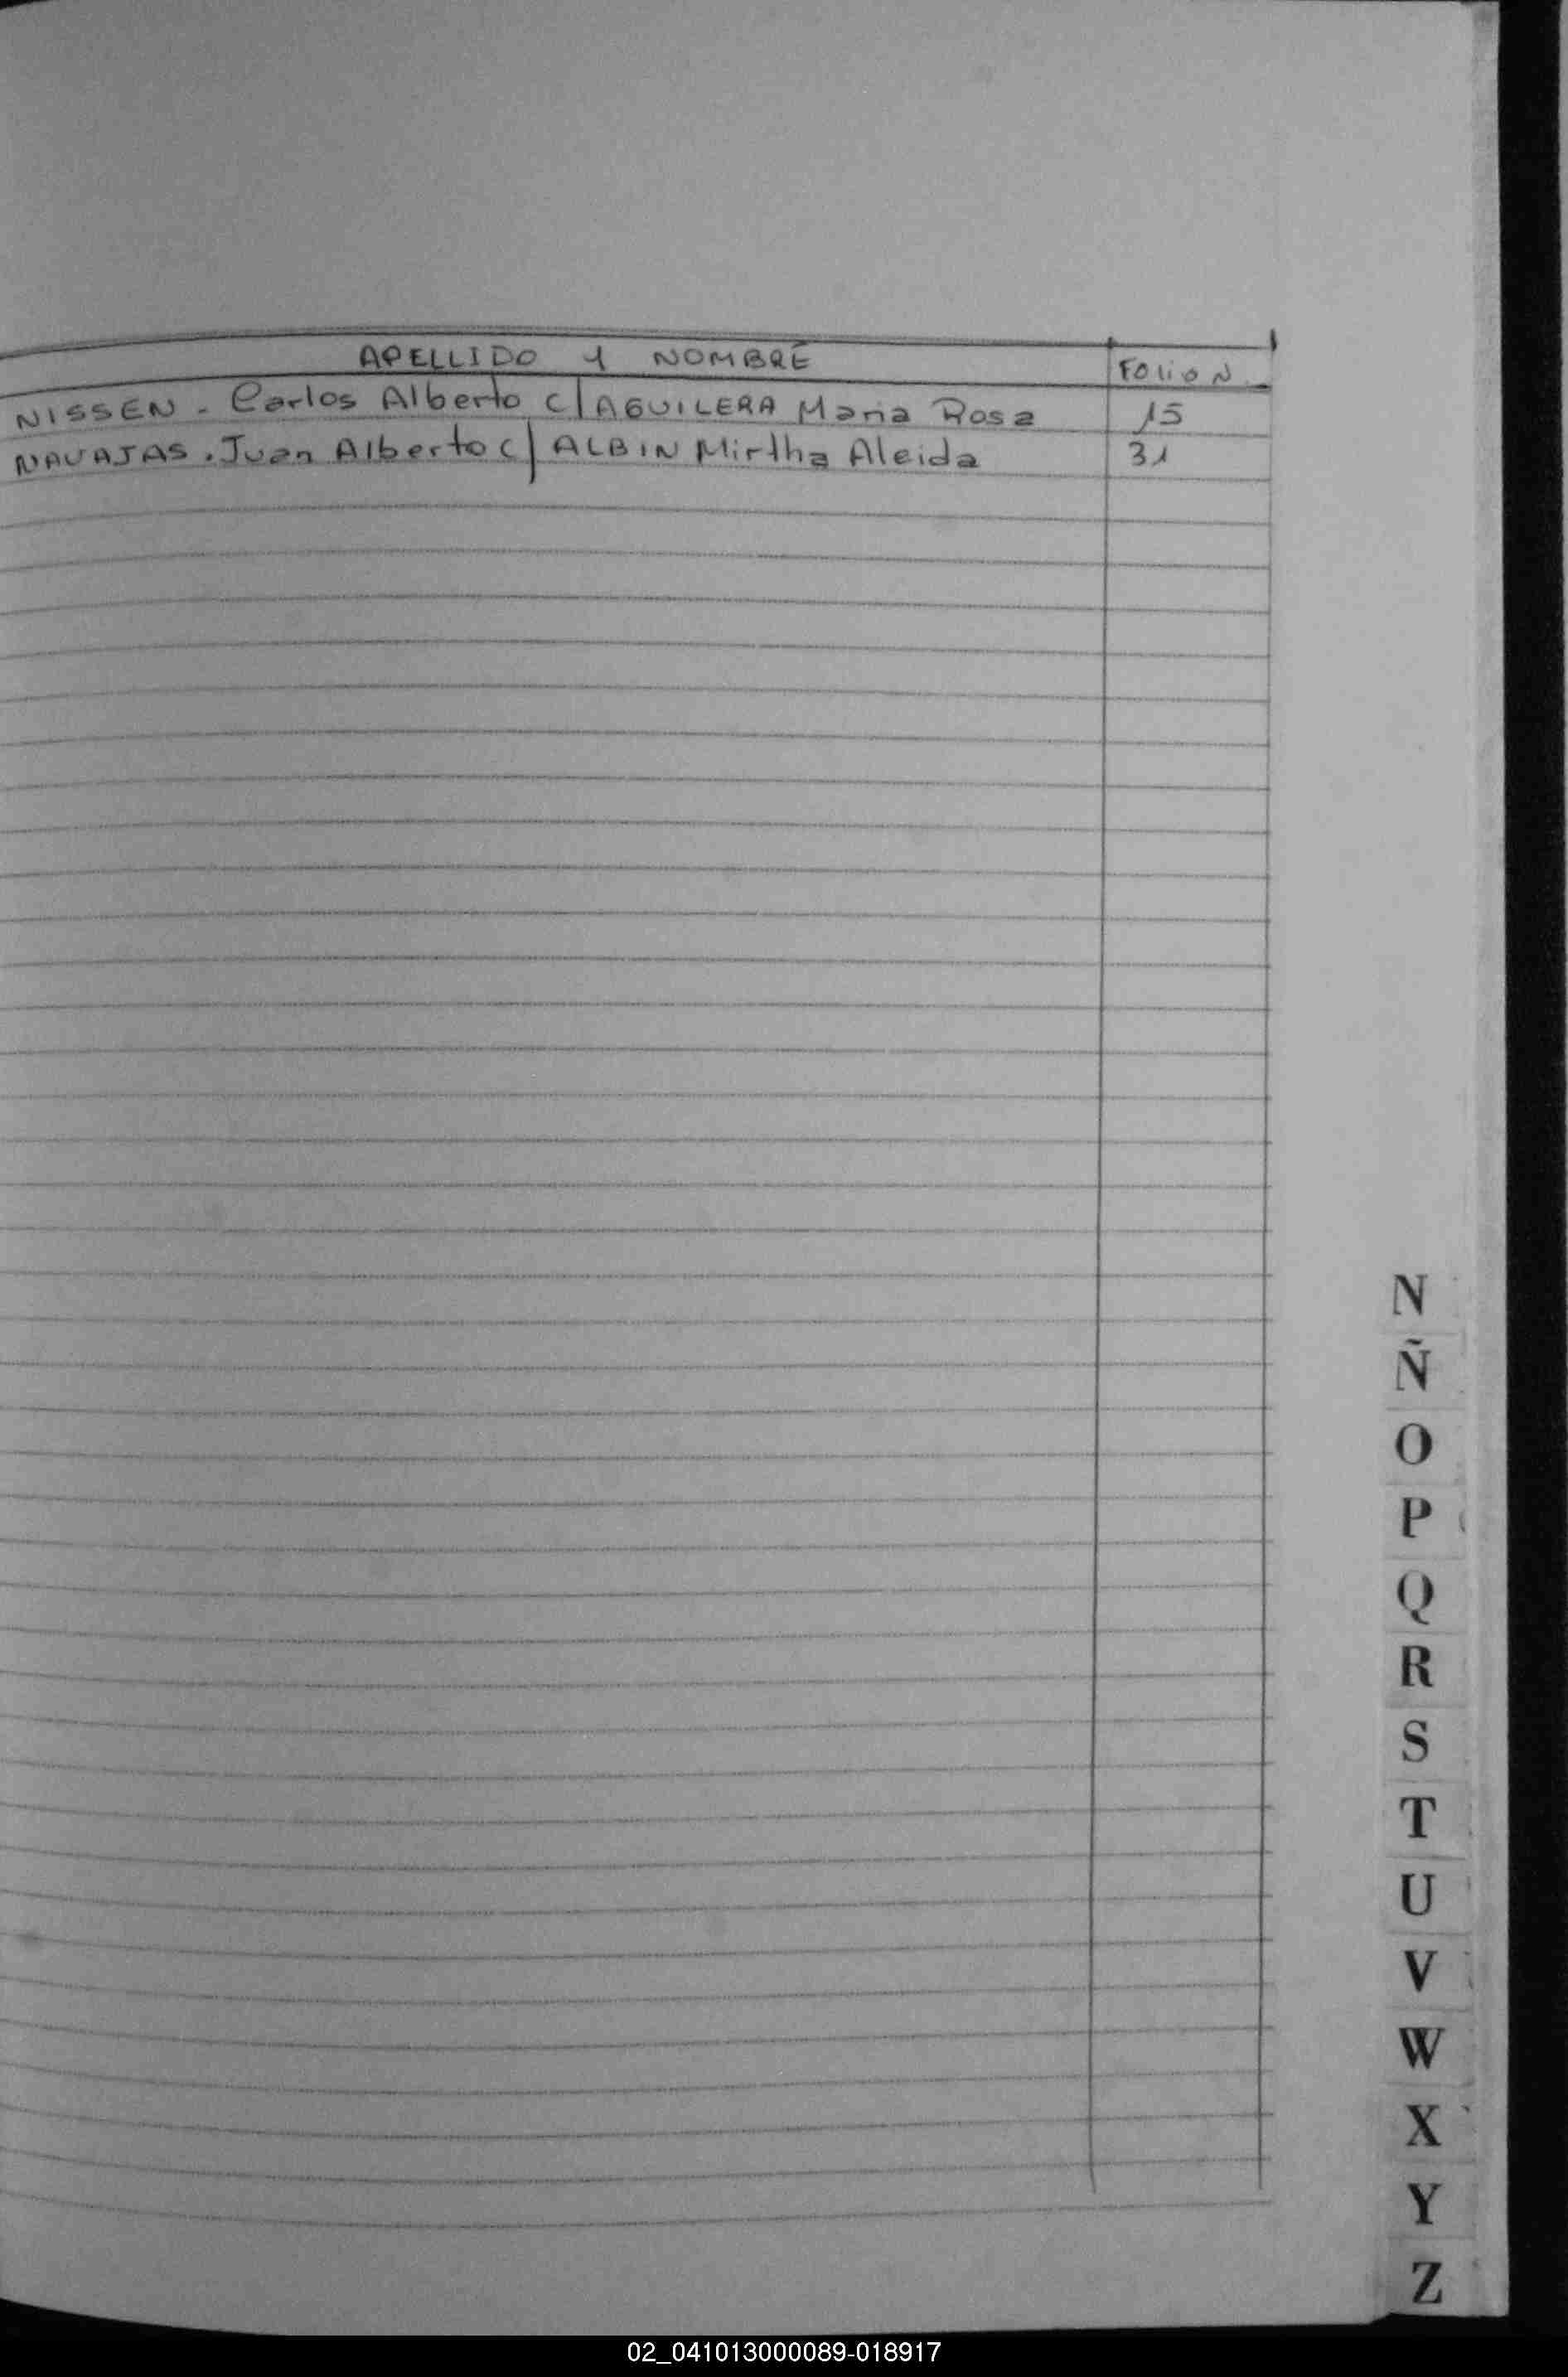 APELLIDO Y NOMBRE FOLIO N
NISSEN - Carlos Alberto c/ AGUILERA Maria Rosa 15
NAVAJAS . Juan Alberto c/ ALBIN Mirtha Aleida 31
N
Ñ
O
P
Q
R
S
T
U
V
W
X
Y
Z
02_041013000089-018917